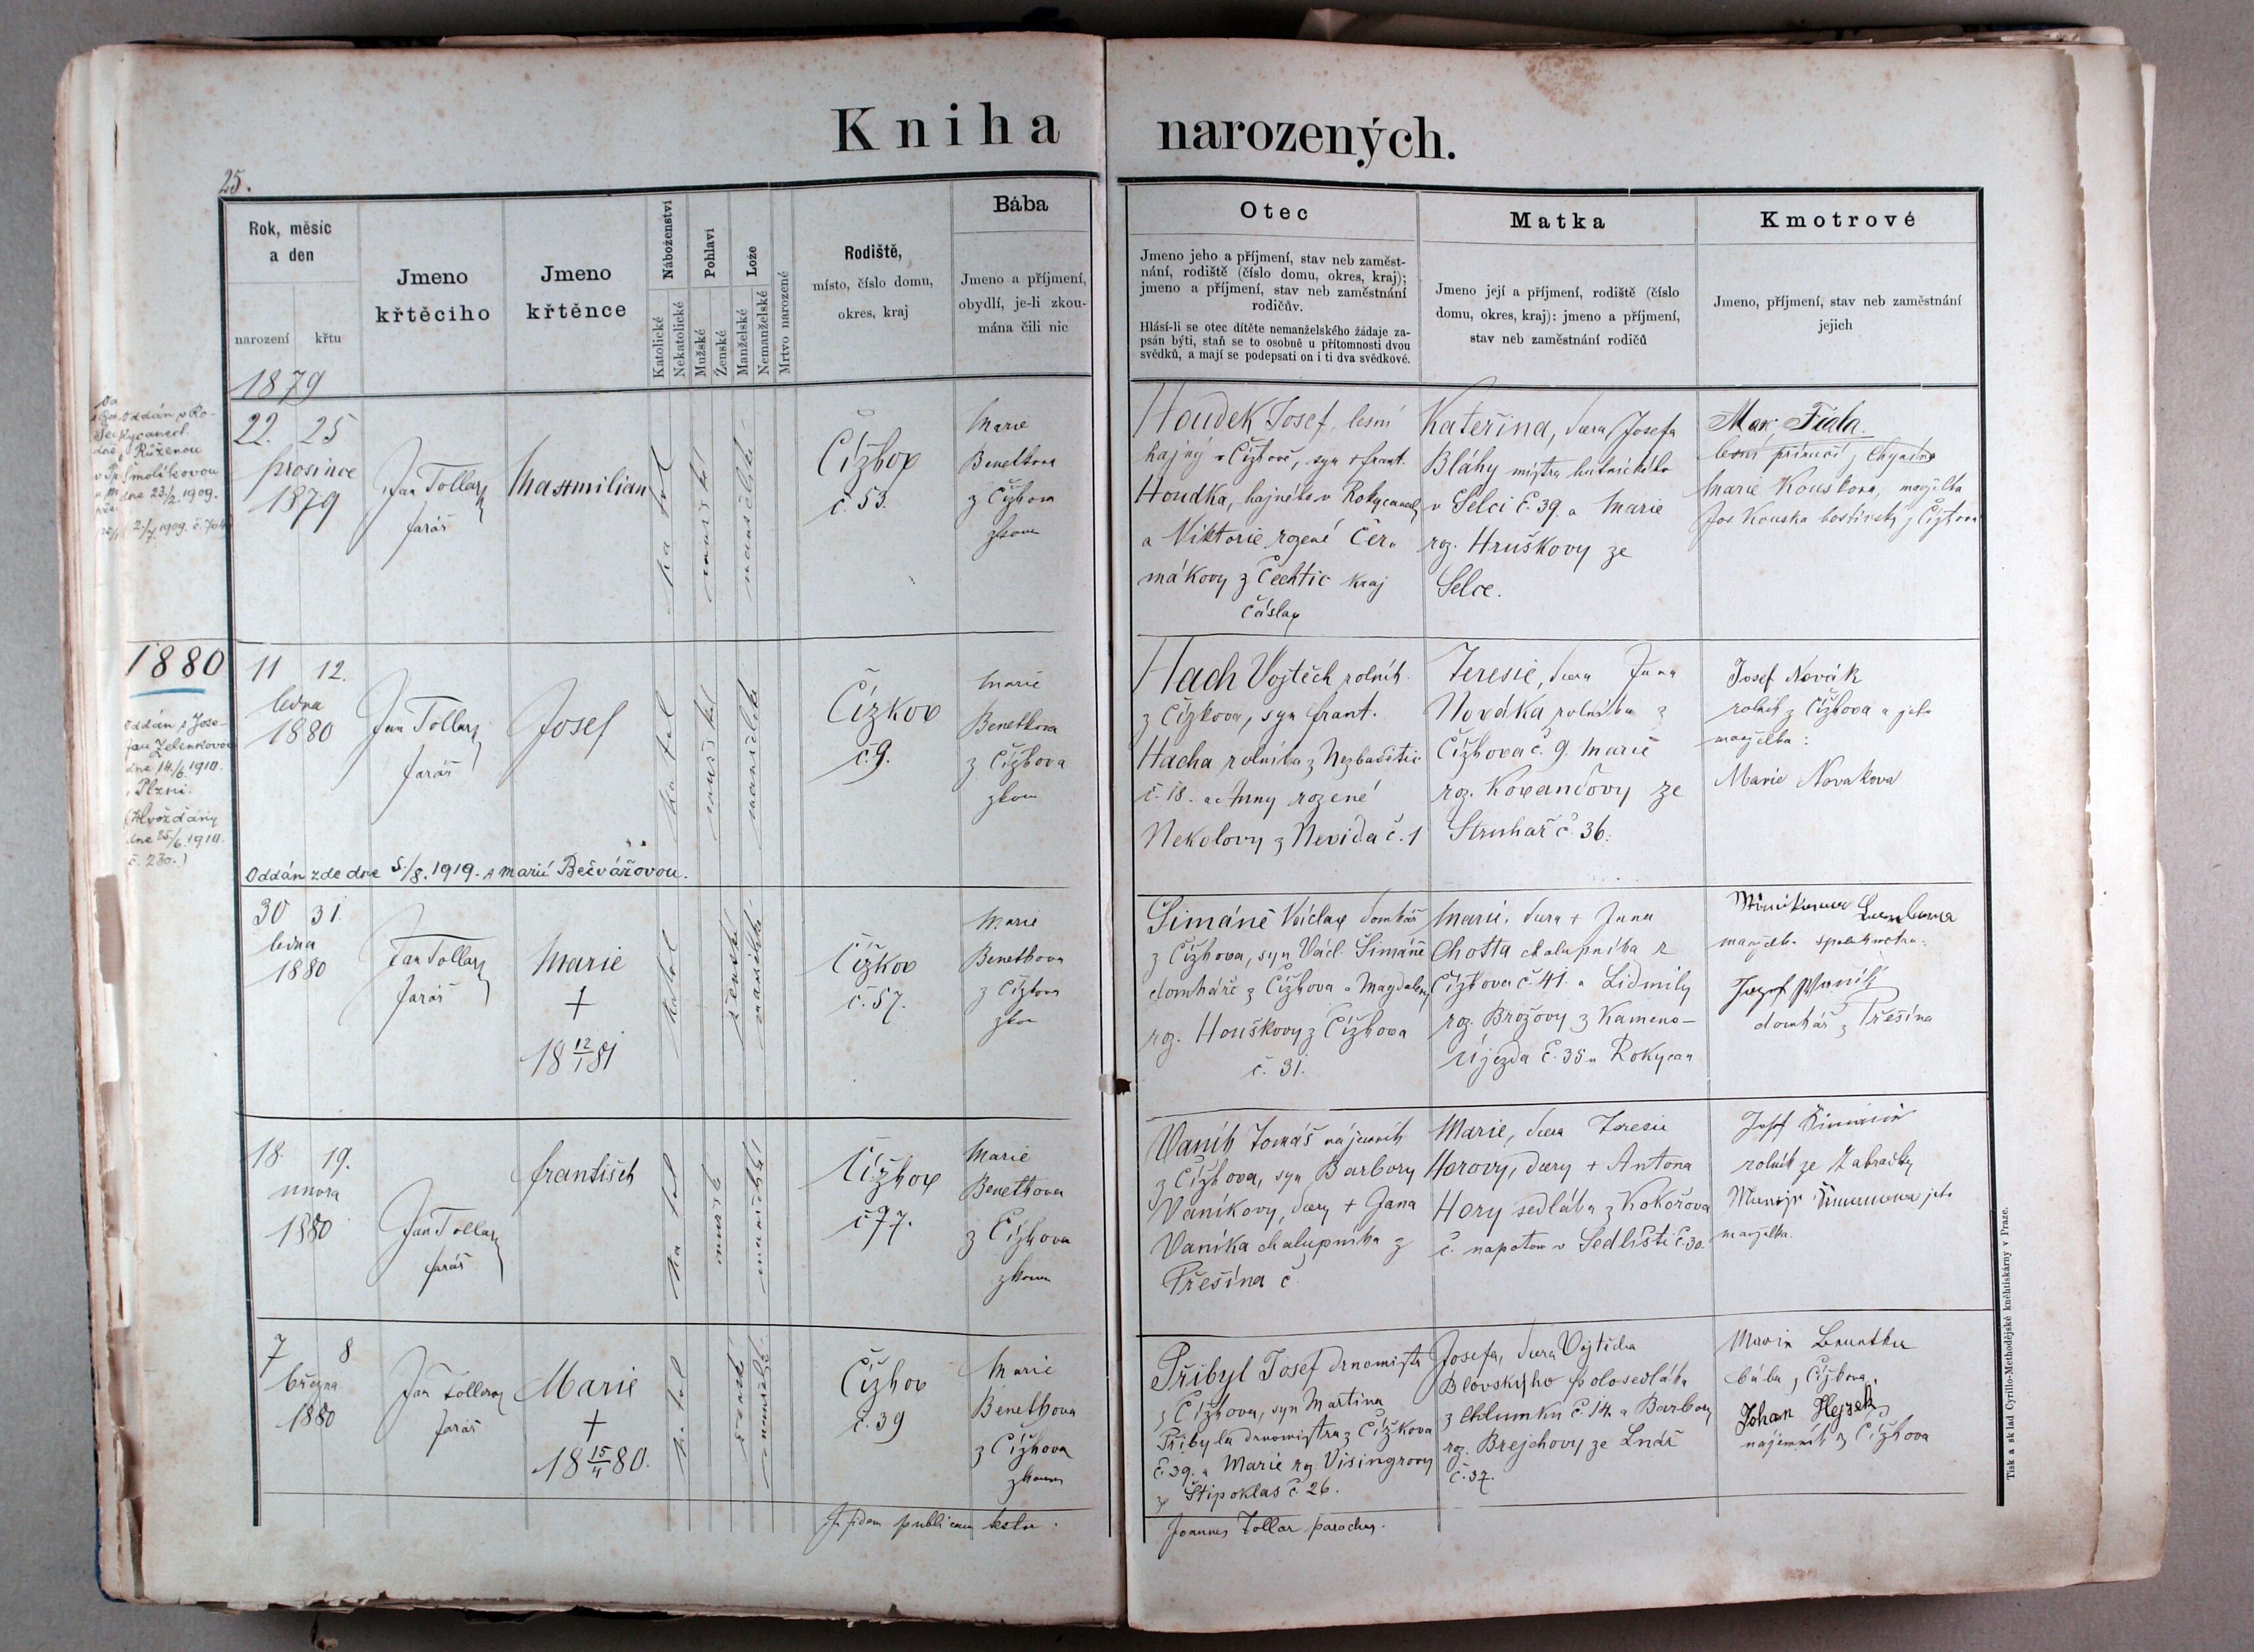 Kniha narozených.
25.
Rok, měsíc
a den
narození křtu
Jmeno
křtěciho
Jmeno
křtěnce
Náboženství
Katolické
Nekatolické
Pohlaví
Mužské
Ženské
Lože
Manželské
Nemanželské
Mrtvo narozené
Rodiště,
místo, číslo domu,
okres, kraj
Bába
Jmeno a příjmení,
obydlí, je-li zkou-
mána čili nic
Otec
Jmeno jeho a příjmení, stav neb zaměst-
nání, rodiště (číslo domu, okres, kraj);
jmeno a příjmení, stav neb zaměstnání
rodičův.
Hlásí-li se otec dítěte nemanželského žádaje za-
psán býti, staň se to osobně u přítomnosti dvou
svědků, a mají se podepsati on i ti dva svědkové.
Matka
Jmeno její a příjmení, rodiště (číslo
domu, okres, kraj): jmeno a příjmení,
stav neb zaměstnání rodičů
Kmotrové
Jmeno, příjmení, stav neb zaměstnání
jejich
1879
Oddán v Ro-
kycanech
Růženou
Smolíkovou
dne 23/2. 1909.
22. 25
prosince
1879
Jan Tollar
farář
Maxmilian
katol
mužské
manželské
Čížkov
č. 53.
Marie
Benetkova
z Čížkova
zkou
Houdek Josef, lesní
hajný v Čížkově, syn + frant.
Houdka, hajného v Rokycanech
a Viktorie rozené Čer-
mákovy z Čechtic kraj
Čáslav
Kateřina, dcera Josefa
Bláhy mistra hutnického
v Selci č. 39. a Marie
roz. Hruškovy ze
Selce.
Max Fiala.
lesní příručí z Chynína
Marie Kouskova, manželka
Jos. Kouska hostinský z Čížkova
1880
Oddán s Jose-
fou Zelenkovou
dne 14./6. 1910.
v Plzni.
(Hvožďany
dne 25/6. 1910.
č. 230.)
11 12.
ledna
1880
Jan Tollar
farář
Josef
katol
mužské
manželské
Čížkov
č. 9.
Marie
Benetkova
z Čížkova
zkou
Hach Vojtěch rolník
z Čížkova, syn frant.
Hacha rolníka z Nezbaditic
č. 18. a Anny rozené
Nekolovy z Nevida č. 1
Teresie, dcera Jana
Nováka rolníka z
Čížkova č. 9 Marie
roz. Kovandovy ze
Struhař č. 36.
Josef Novák
rolník z Čížkova a jeho
manželka:
Marie Novakova
Oddán zde dne 5/8. 1919. s Marií Bečvářovou.
30 31.
ledna
1880
Jan Tollar
farář
Marie
+
18 12/1 81
katol
ženské
manželské
Čížkov
č. 57.
Marie
Benetkova
z Čížkova
zkou
Šimáně Václav domkář
z Čížkova, syn Václ. Šimáně
domkáře z Čížkova a Magdaleny
roz. Houškovy z Čížkova
č. 31.
Marie, dcera + Jana
Chotta chalupníka z
Čížkova č. 41. a Lidmily
roz. Brožovy z Kameno-
Újezda č. 35 u Rokycan
manželka spolukmotra:
Jozef Wanik
domkář z Přešína
18. 19.
února
1880
Jan Tollar
farář
František
katol
mužské
manželské
Čížkov
č. 77.
Marie
Benetkova
z Čížkova
zkoum
Vaník Tomáš nájemník
z Čížkova, syn Barbory
Vaníkovy, dcery + Jana
Vaníka chalupníka z
Přešína č
Marie, dcera Teresie
Horovy, dcery + Antona
Hory sedláka z Kokořova
č. napotom v Sedlišti č. 30.
rolník ze Zahradky
jeho
manželka.
7 8
března
1880
Jan Tollar
farář
Marie
+
18 15/4 80.
katol
ženské
manželské
Čížkov
č. 39
Marie
Benetkova
z Čížkova
zkoum
Přibyl Josef drnomistr
z Čížkova, syn Martina
Přibyla drnomistra z Čížkova
č. 39. a Marie roz. Visingrovy
ze Štipoklas č. 26.
Josefa, dcera Vojtěcha
Blovského polosedláka
z Chlumku č. 14. a Barbory
roz. Brejchovy ze Lnář
č. 37.
Marie Benetka
bába z Čížkova,
Johan Hejzek
nájemník z Čížkova
In fidem publicam testor.
Joannes Tollar parochus.
Tisk a sklad Cyrillo-Methodějské kněhtiskárny v Praze.